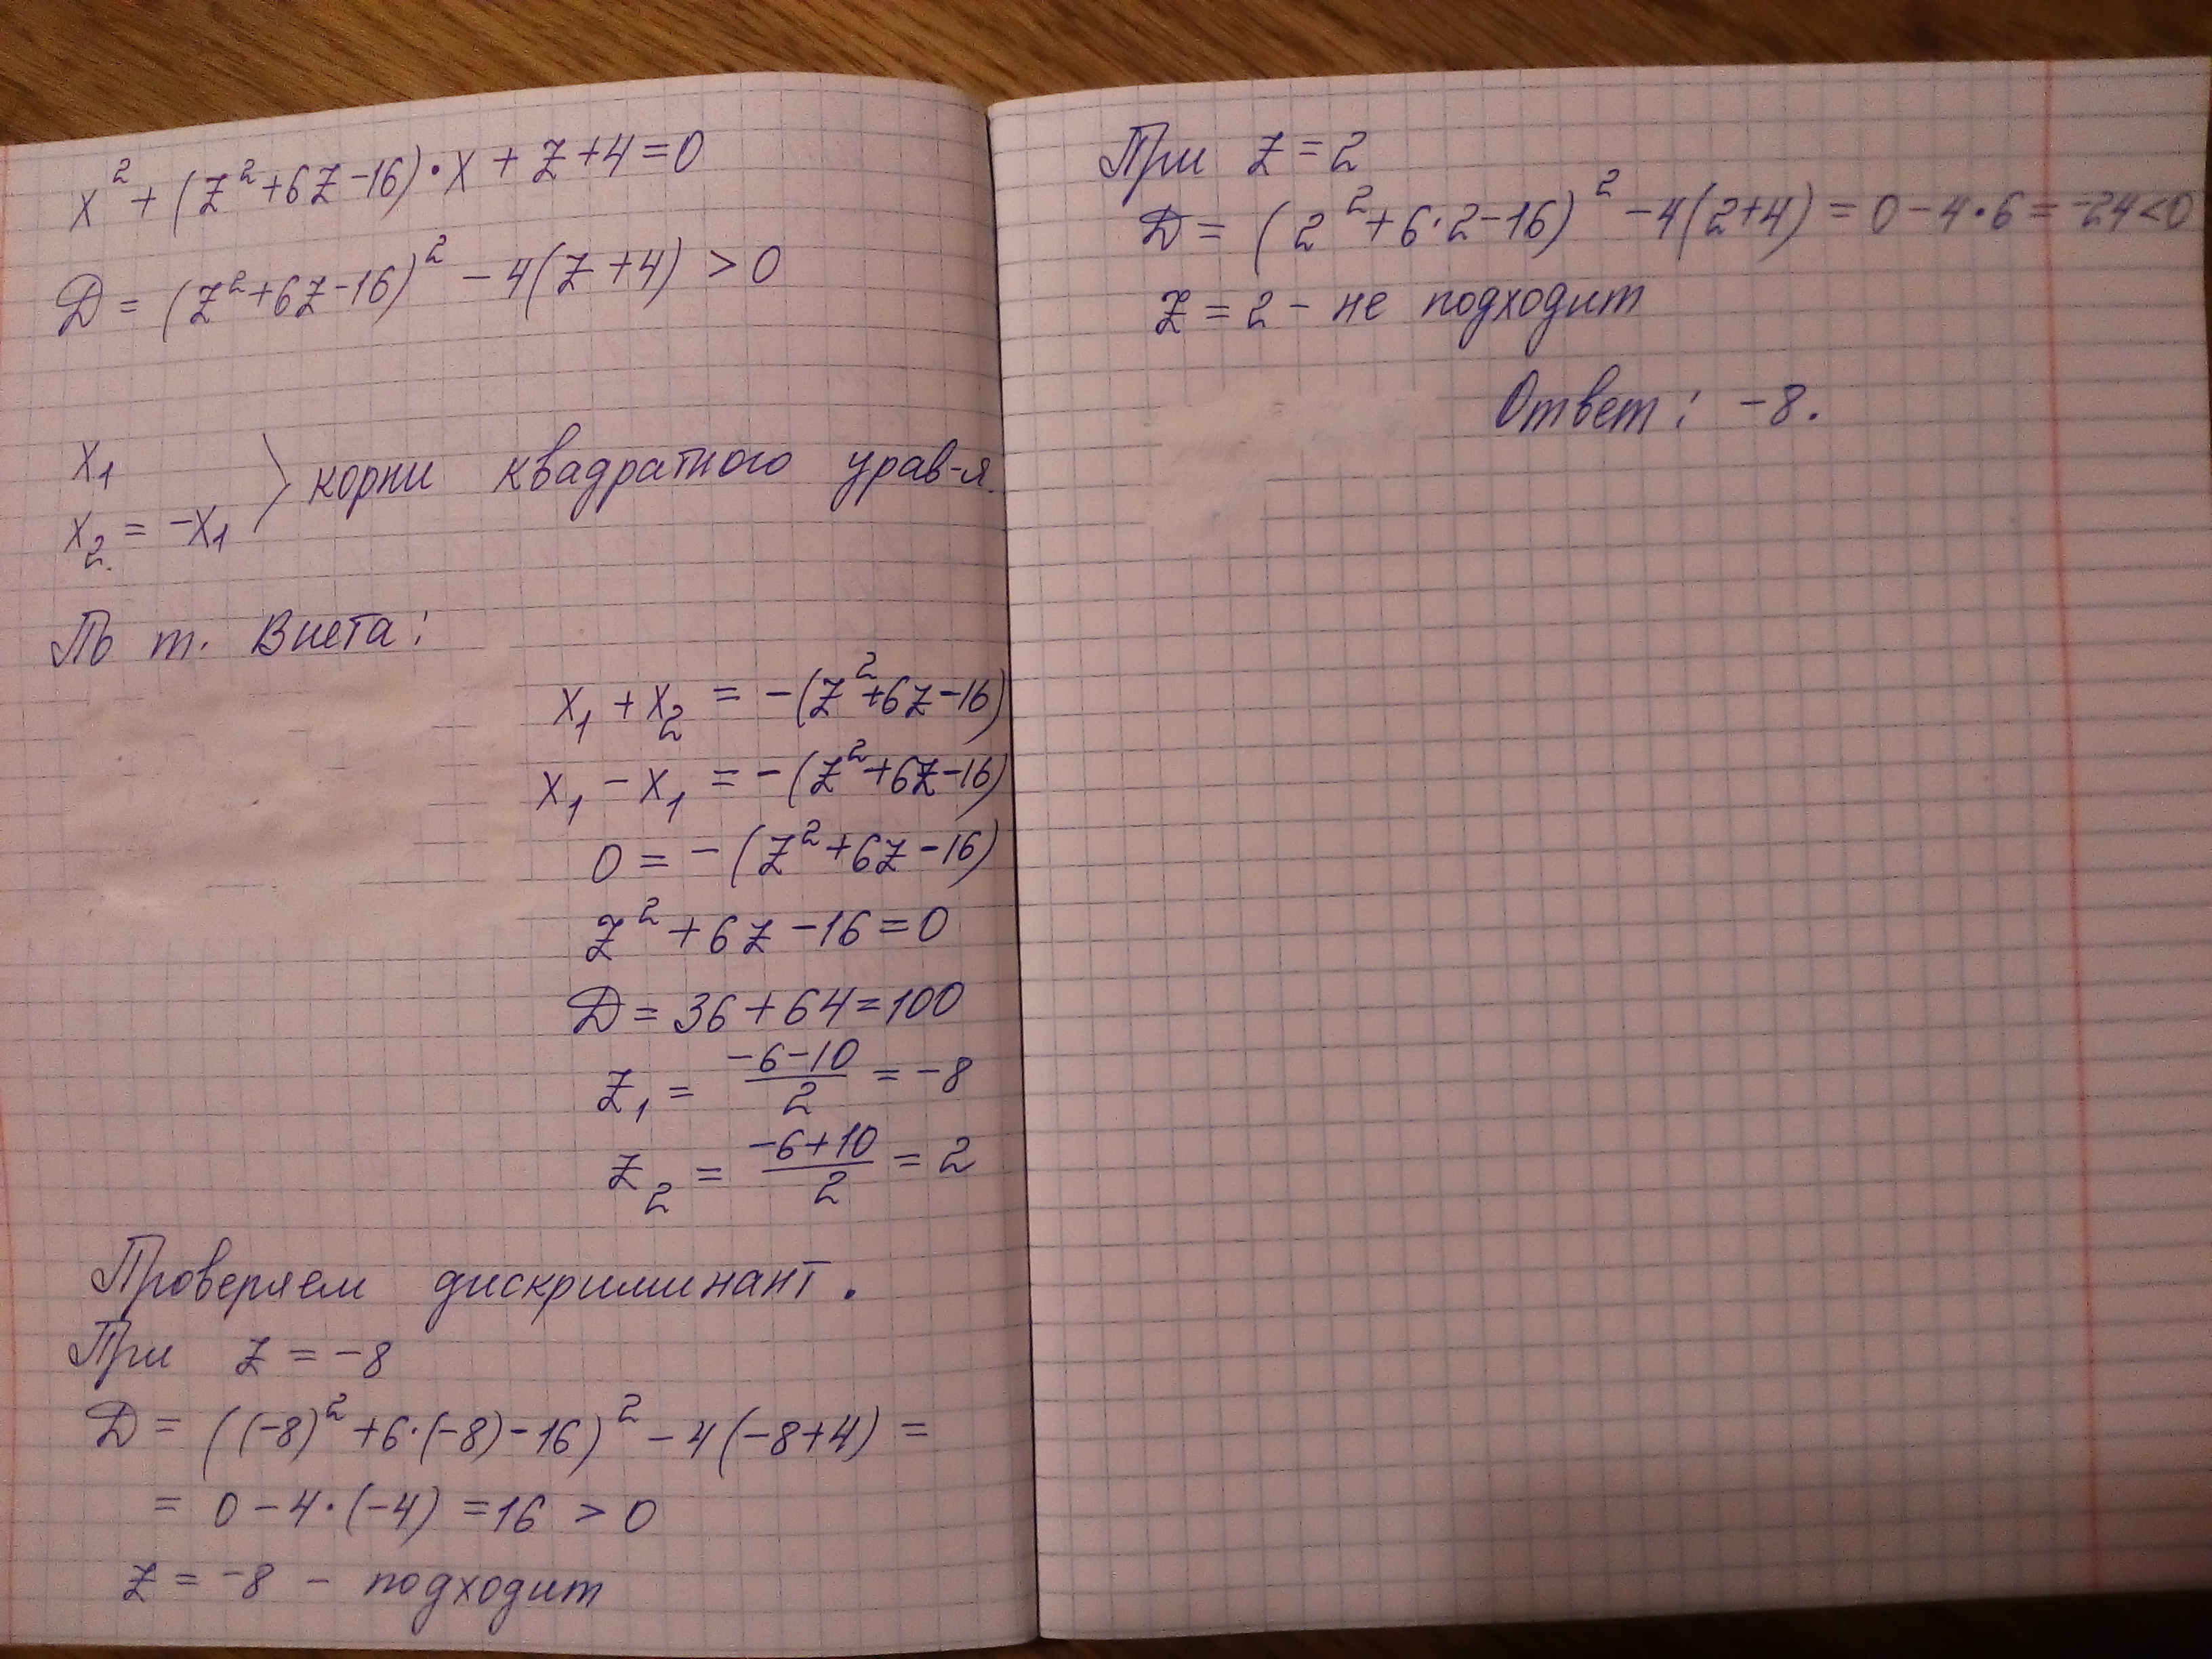 x² + (z²+6z-16)·x + z+4=0
D = (z²+6z-16)² - 4(z+4) > 0
x₁
x₂ = -x₁ } корни квадратного урав-я.
По т. Виета:
x₁ + x₂ = -(z²+6z-16)
x₁ - x₁ = -(z²+6z-16)
0 = -(z²+6z-16)
z²+6z-16=0
D = 36+64=100
z₁ = (-6-10)/2 = -8
z₂ = (-6+10)/2 = 2
Проверяем дискриминант.
При z = -8
D = ((-8)²+6·(-8)-16)² - 4(-8+4) =
= 0-4·(-4) =16 > 0
z = -8 - подходит
При z = 2
D = (2²+6·2-16)² -4(2+4) = 0-4·6 = -24<0
z = 2 - не подходит
Ответ: -8.